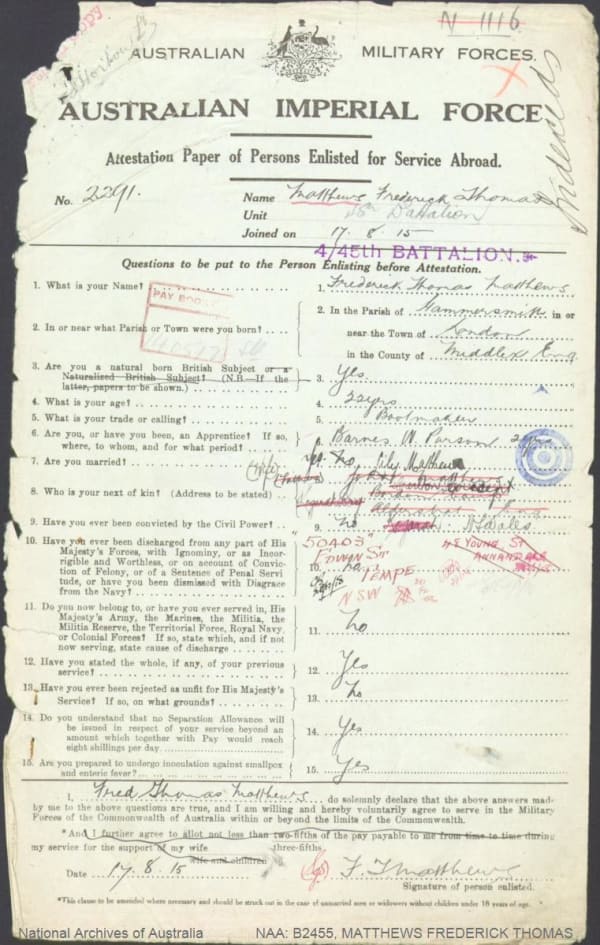 N 1116
AUSTRALIAN MILITARY FORCES.
Indexed
AUSTRALIAN IMPERIAL FORCE
Attestation Paper of Persons Enlisted for Service Abroad.
No. 2291. Name Matthews Frederick Thomas
Unit 45th Battalion
Joined on 17. 8. 15
4/45th BATTALION.
Questions to be put to the Person Enlisting before Attestation.
1. What is your Name? 1. Frederick Thomas Matthews
PAY BOOK
2. In or near what Parish or Town were you born? 2. In the Parish of Hammersmith in or
near the Town of London
in the County of Middlx Eng
3. Are you a natural born British Subject or a
Naturalized British Subject? (N.B.—If the
latter, papers to be shown.) 3. Yes
4. What is your age? 4. 22yrs
5. What is your trade or calling? 5. Bootmaker
6. Are you, or have you been, an Apprentice? If so,
where, to whom, and for what period? 6. Barnes W. Parson 2yrs
7. Are you married? 7. No Lily Matthews
8. Who is your next of kin? (Address to be stated)
9. Have you ever been convicted by the Civil Power? 9. No
10. Have you ever been discharged from any part of His
Majesty's Forces, with Ignominy, or as Incor-
rigible and Worthless, or on account of Convic-
tion of Felony, or of a Sentence of Penal Servi-
tude, or have you been dismissed with Disgrace
from the Navy? 10. No
45 YOUNG ST
ANNANDALE
TEMPE
NSW
11. Do you now belong to, or have you ever served in, His
Majesty's Army, the Marines, the Militia, the
Militia Reserve, the Territorial Force, Royal Navy,
or Colonial Forces? If so, state which, and if not
now serving, state cause of discharge 11. No
12. Have you stated the whole, if any, of your previous
service? 12. Yes
13. Have you ever been rejected as unfit for His Majesty's
Service? If so, on what grounds? 13. No
14. Do you understand that no Separation Allowance will
be issued in respect of your service beyond an
amount which together with Pay would reach
eight shillings per day 14. Yes
15. Are you prepared to undergo inoculation against smallpox
and enteric fever? 15. Yes
I, Fred Thomas Matthews do solemnly declare that the above answers made
by me to the above questions are true, and I am willing and hereby voluntarily agree to serve in the Military
Forces of the Commonwealth of Australia within or beyond the limits of the Commonwealth.
*And I further agree to allot not less than two-fifths of the pay payable to me from time to time during
my service for the support of my wife three-fifths
wife and children
Date 17. 8. 15 F. T Matthews
Signature of person enlisted.
*This clause to be amended where necessary and should be struck out in the case of unmarried men or widowers without children under 18 years of age.
National Archives of Australia NAA: B2455, MATTHEWS FREDERICK THOMAS